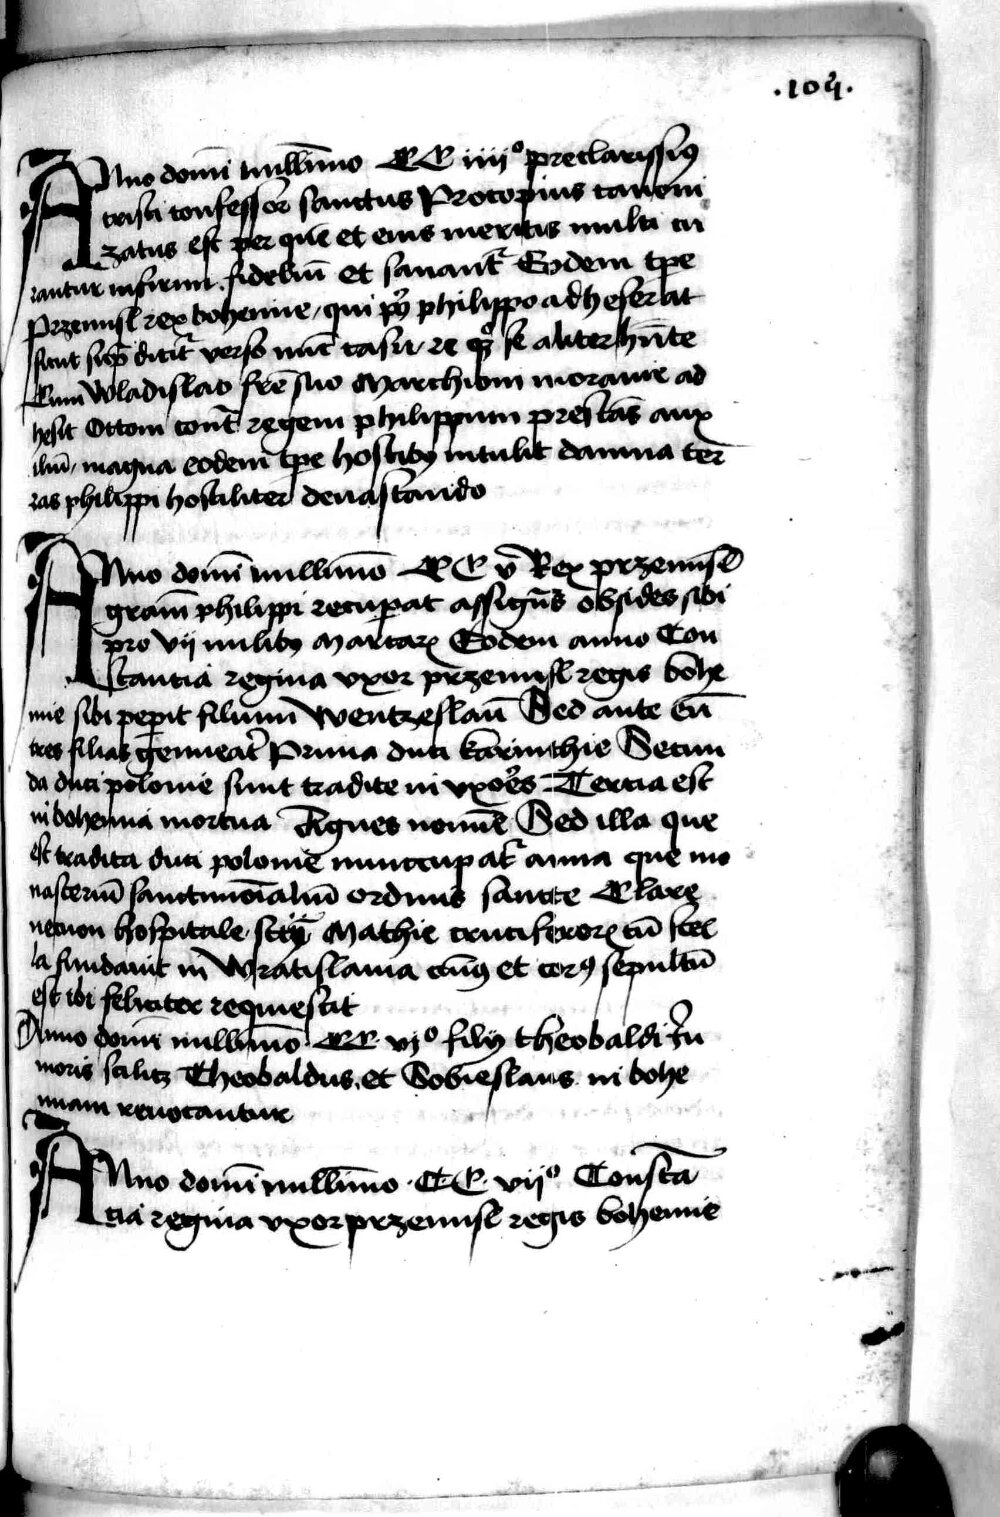 .104.
Anno domī millīmo CC iiijº preclarissim⁹
cristi confessor̄ sanctus Procopius canoni
zatus est per quē et eius meritis multi cu
rantur infirmi fideliū et sanant̄ Eodem tp̄e
Przemisl rex bohemie, qui p⁹ philippo adheserat
sicut sup̄ dicit̄ verso nūc casu
Cum Wladislao frē suo Marchioni morauie ad
hesit Ottoni cont̄ regem philippum prestās aux
iliū, magna eodem tp̄e hostib⁹ intulit damna ter
ras philippi hostiliter deuastando
Anno domī millīmo CC vº Rex przemisl
gram̄ philippi recuperat assignās obsides sibi
pro vij milib⁹ Marcaꝝ Eodem anno Con
stancia regina vxor przemisl regis bohe
mie sibi peperit filium Wentzeslaū Sed ante eū
tres filias genuerat Prima duci karinthie Secun
da duci polonie sunt tradite in vxores Tercia est
in bohemia mortua Agnes nomē Sed illa que
est tradita duci polonie nuncupat̄ anna que mo
nasteriū sanctimōialiū ordinis sancte Clare
necnon hospitale sctī Mathie cruciferoꝝ cū stel
la fundauit in Wratislauia cui⁹ et corp⁹ sepultū
est ibi feliciter requiescit
Anno domī millīmo CC vjº filij theobaldi Iu
nioris scilicꝫ Theobaldus, et Sobieslaus in bohe
miam reuocantur
Anno domī millīmo CC vijº Constā
cia regina vxor przemisl regis bohemie